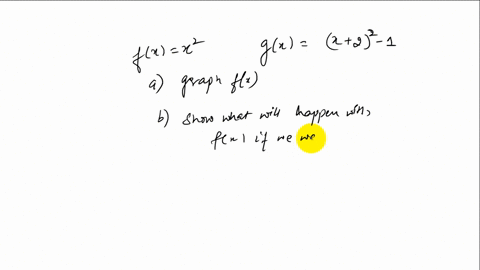 f(x) = x² g(x) = (x+2)² - 1
a) graph f(x)
b) show what will happen with,
f(x) if we we